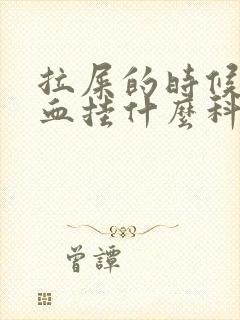 拉屎的時候
血掛什麼科
曾譚